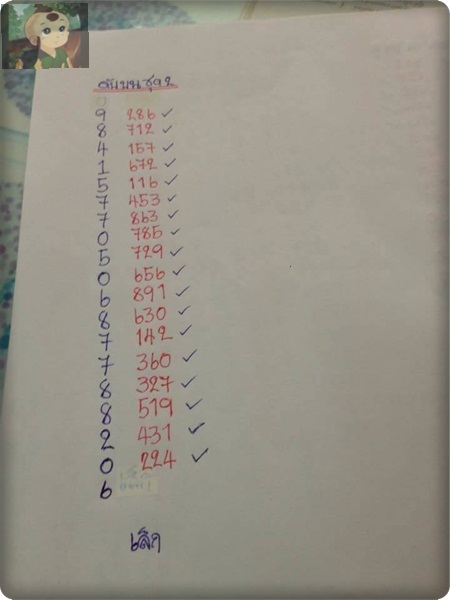 9 286 ✓
8 712 ✓
4 157 ✓
1 672 ✓
5 116 ✓
7 453 ✓
7 863 ✓
0 785 ✓
5 729 ✓
0 656 ✓
6 891 ✓
8 630 ✓
7 142 ✓
7 360 ✓
8 327 ✓
8 519 ✓
2 431 ✓
0 224 ✓
6